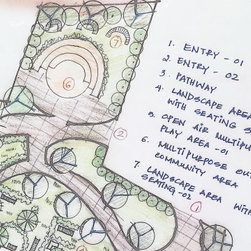 1. ENTRY - 01
2. ENTRY - 02
3. PATHWAY
4. LANDSCAPE AREA
WITH SEATING -
5. OPEN AIR MULTIPU
PLAY AREA -01
6. MULTIPURPOSE OUT
COMMUNITY AREA
7. LANDSCAPE AREA WITH
SEATING -02
7
6
2
1